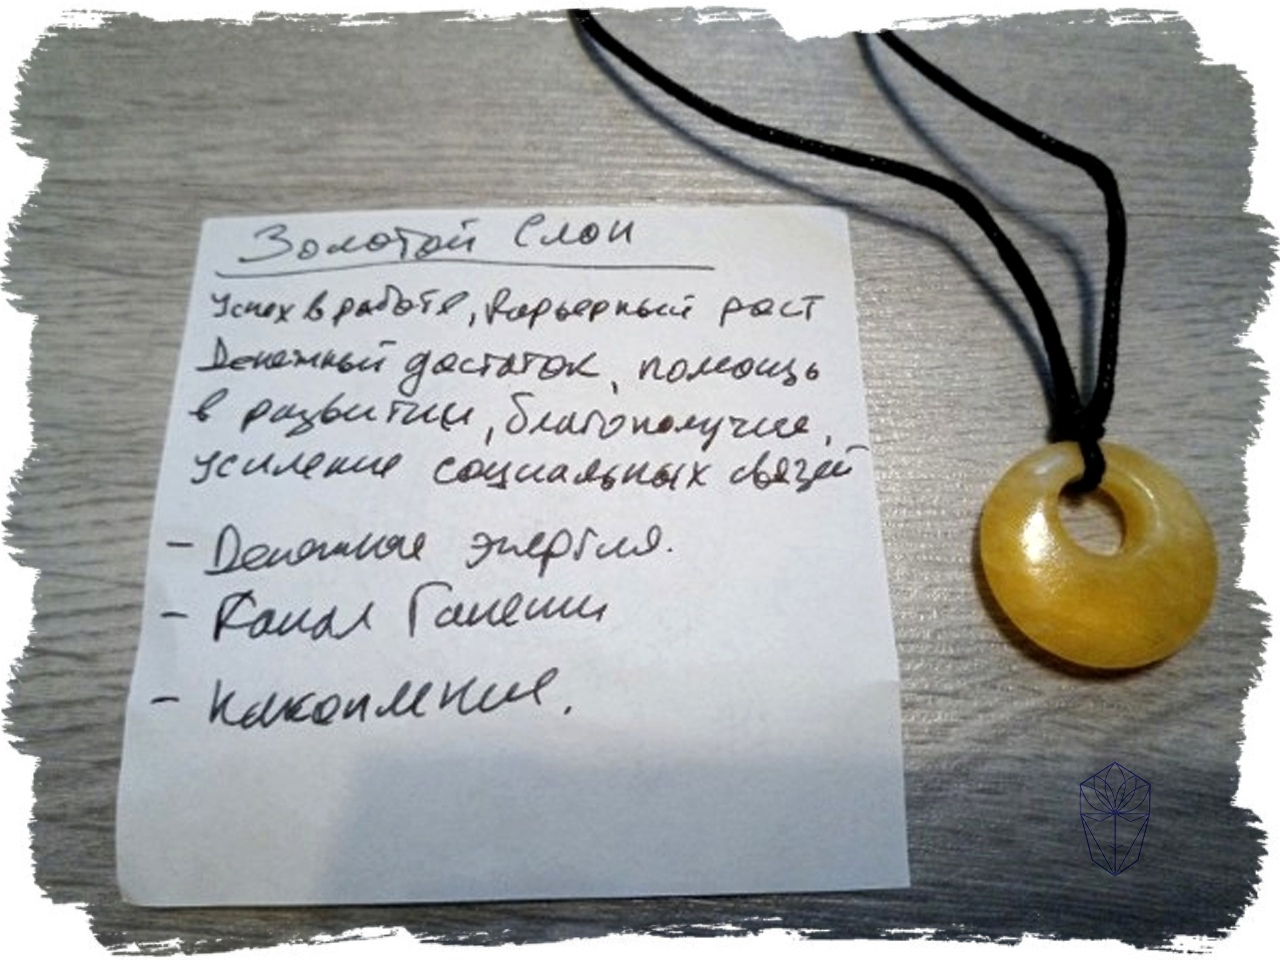 Золотой Слон
Успех в работе, карьерный рост
Денежный достаток, помощь
в развитии, благополучие,
усиление социальных связей
- Денежная энергия.
- Канал Ганеши
- накопление.